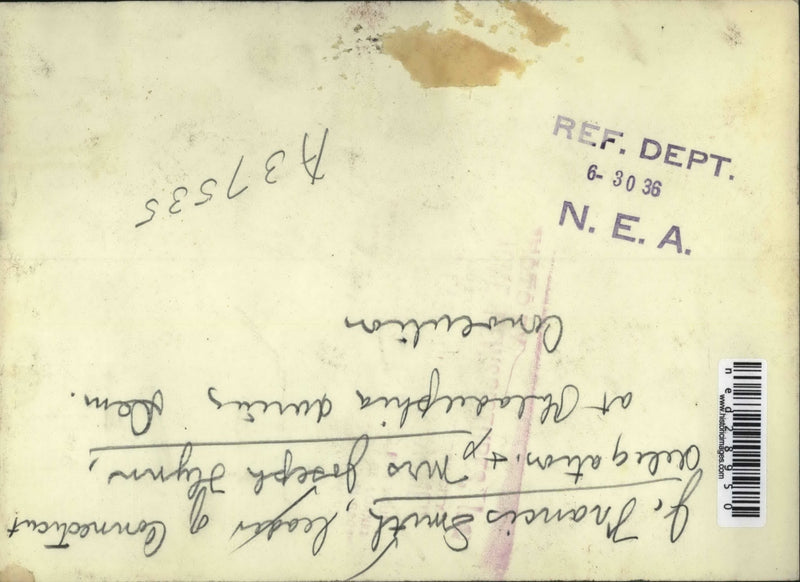 REF. DEPT.
6-30 36
N. E. A.
A37535
J. Francis Smith, leader of Connecticut
delegation. + Mrs Joseph Flynn,
at Philadelphia during Dem.
Convention
ned28950
www.historicimages.com